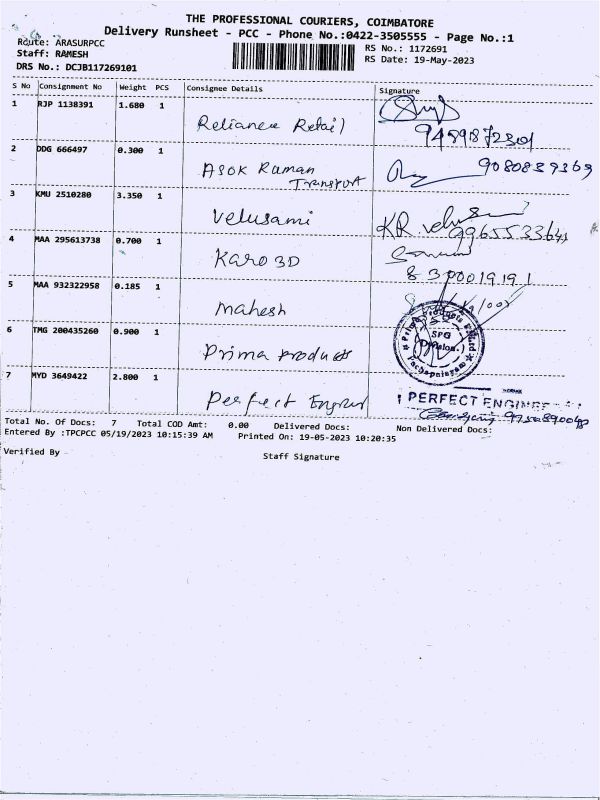 THE PROFESSIONAL COURIERS, COIMBATORE
Delivery Runsheet - PCC - Phone No.:0422-3505555 - Page No.:1
Route: ARASURPCC
RS No.: 1172691
Staff: RAMESH
RS Date: 19-May-2023
DRS No.: DCJB117269101
S No Consignment No Weight PCS Consignee Details Signature
1 RJP 1138391 1.680 1
Reliance Retail
2 DDG 666497 0.300 1
Asok Raman 9080839369
Transport
3 KMU 2510280 3.350 1
Velusami KR
4 MAA 295613738 0.700 1
Karo 3D
8300019191
5 MAA 932322958 0.185 1
Mahesh
6 TMG 200435260 0.900 1
SPG
Prima Products
7 MYD 3649422 2.800 1
Perfect
PERFECT
Total No. Of Docs: 7 Total COD Amt: 0.00 Delivered Docs: Non Delivered Docs:
Entered By :TPCPCC 05/19/2023 10:15:39 AM Printed On: 19-05-2023 10:20:35
Verified By
Staff Signature